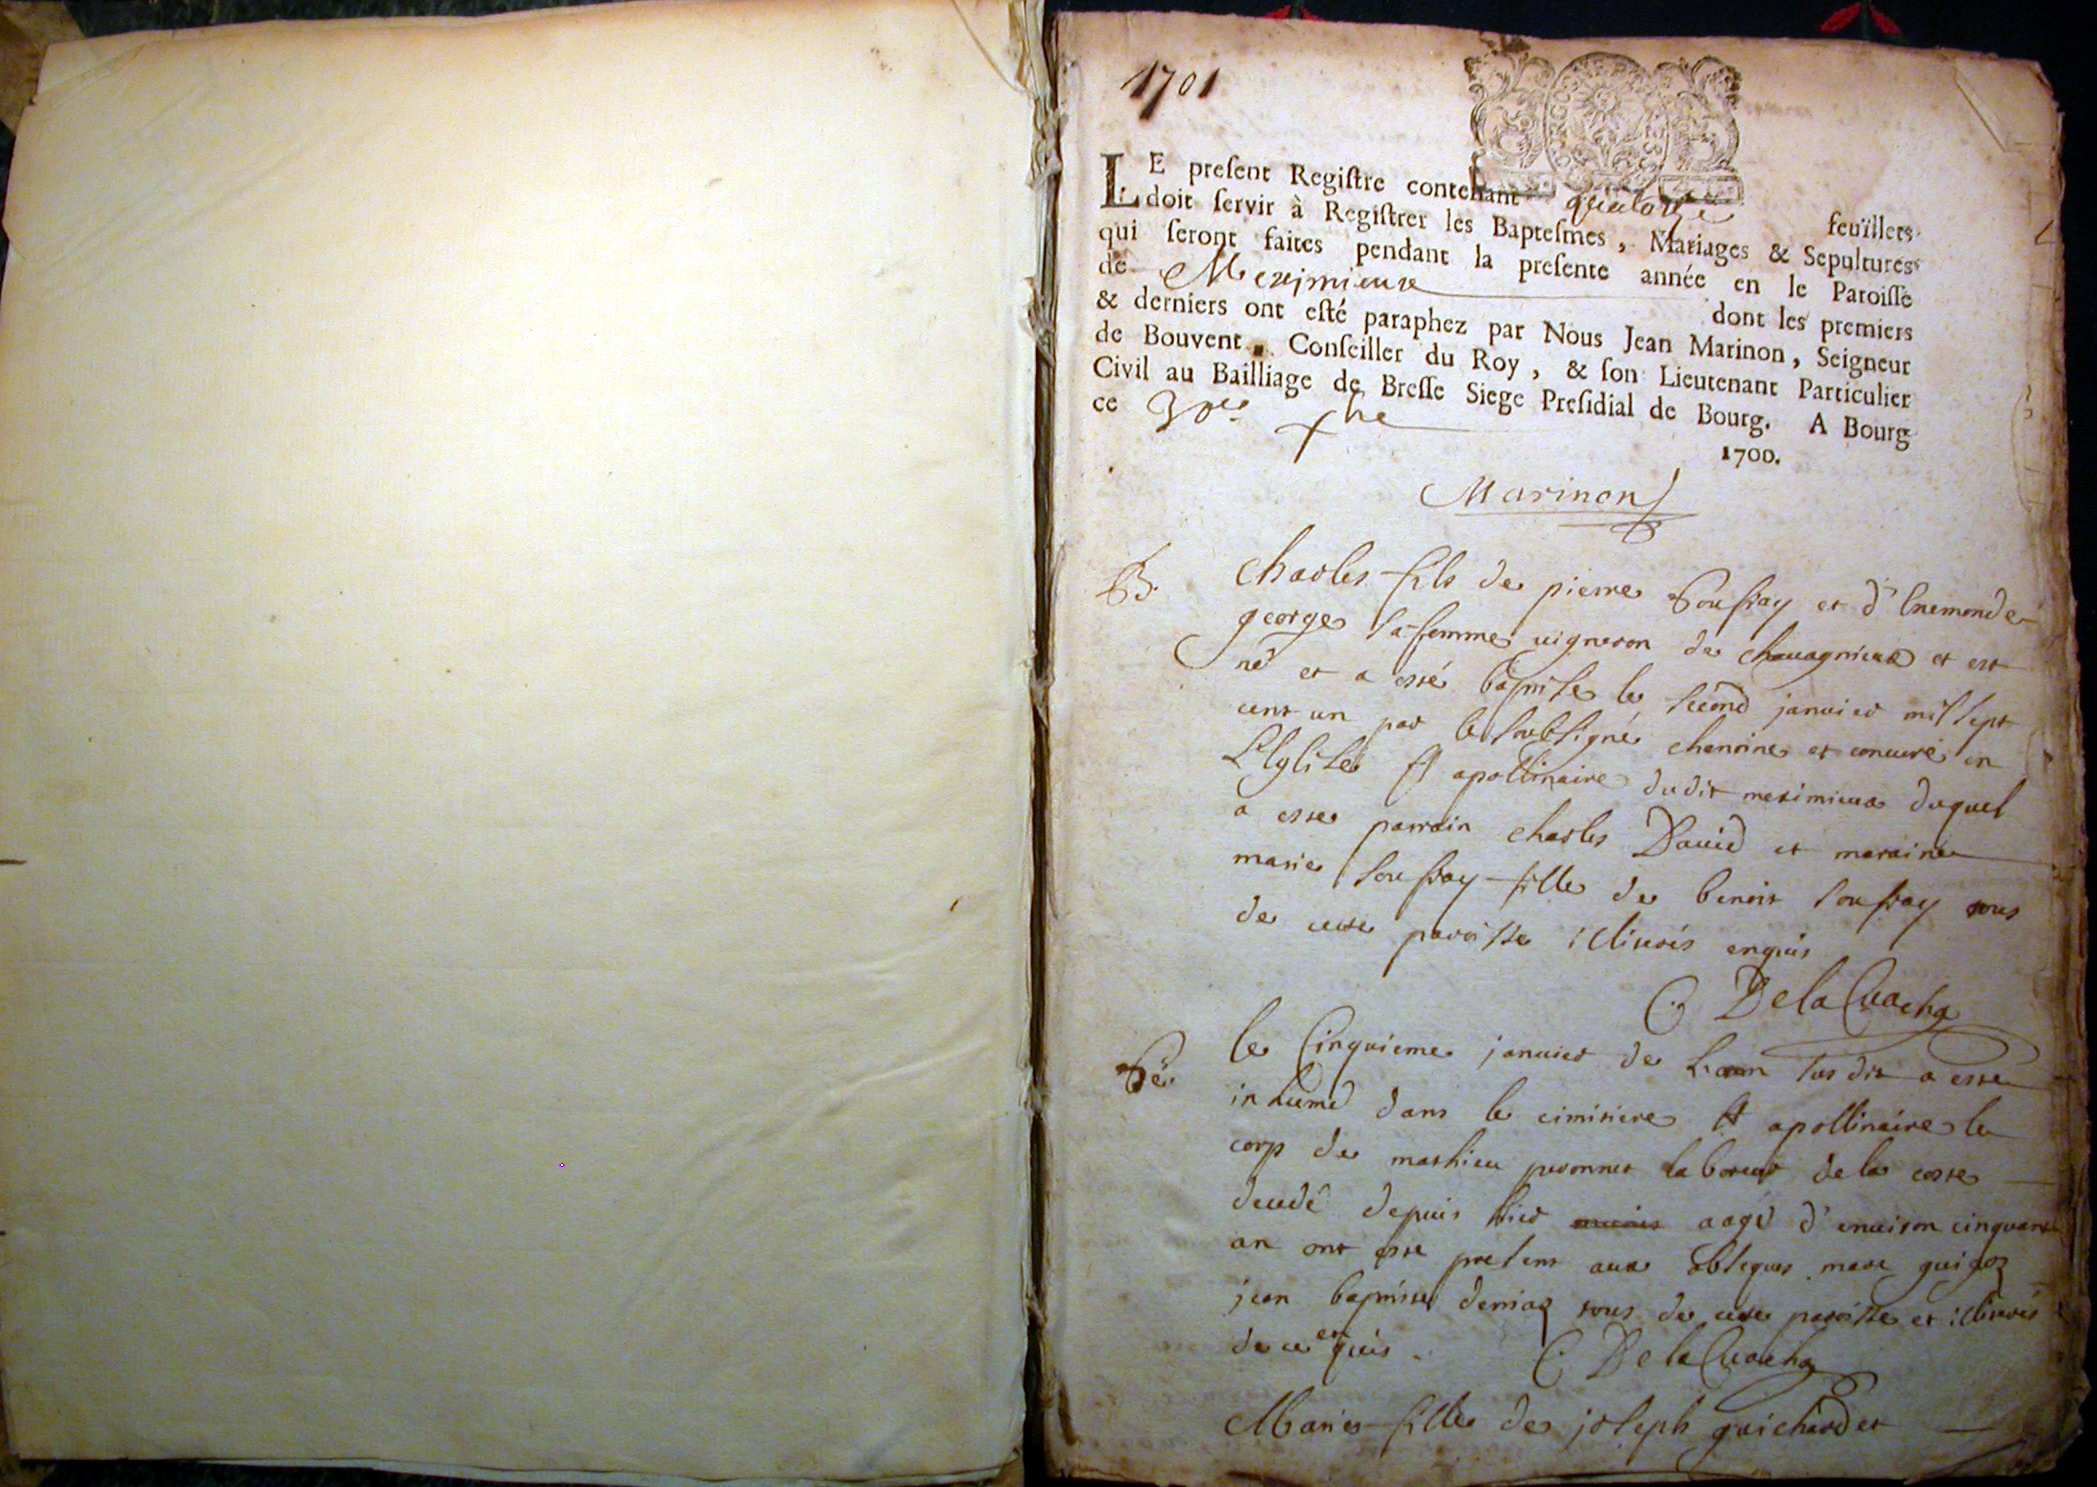 1701
LE preſent Regiſtre contenant quatorze feuïllets
doit ſervir à Regiſtrer les Bapteſmes, Mariages & Sepultures
qui ſeront faites pendant la preſente année en le Paroiſſe
de Meximieux dont les premiers
& derniers ont eſté paraphez par Nous Jean Marinon, Seigneur
de Bouvent, Conſeiller du Roy, & ſon Lieutenant Particulier
Civil au Bailliage de Breſſe Siege Preſidial de Bourg. A Bourg
ce
1700.
Marinon
B. Charles fils de pierre et d'
george sa femme vigneron de chavagnieux et est
né et a esté baptisé le second janvier mil sept
cent un par le soubsigné chanoine et concuré en
L'eglise St apollinaire dudit meximieux duquel
a esté parrain charles David et maraine
marie soufray fille de benoit soufray tous
de cette paroisse illiterés enquis
C. De la Cua
le Cinquieme janvier de L'an susdit a esté
inhumé dans le cimitiere St apollinaire le
corp de mathieu laboreur de la coste
decedé depuis hier aagé d'environ cinquante
an ont esté presens aux obseques marc
jean baptiste tous de cette paroisse et illiterés
de ce enquis. C. De la Cua
Marie fille de joseph guichard et